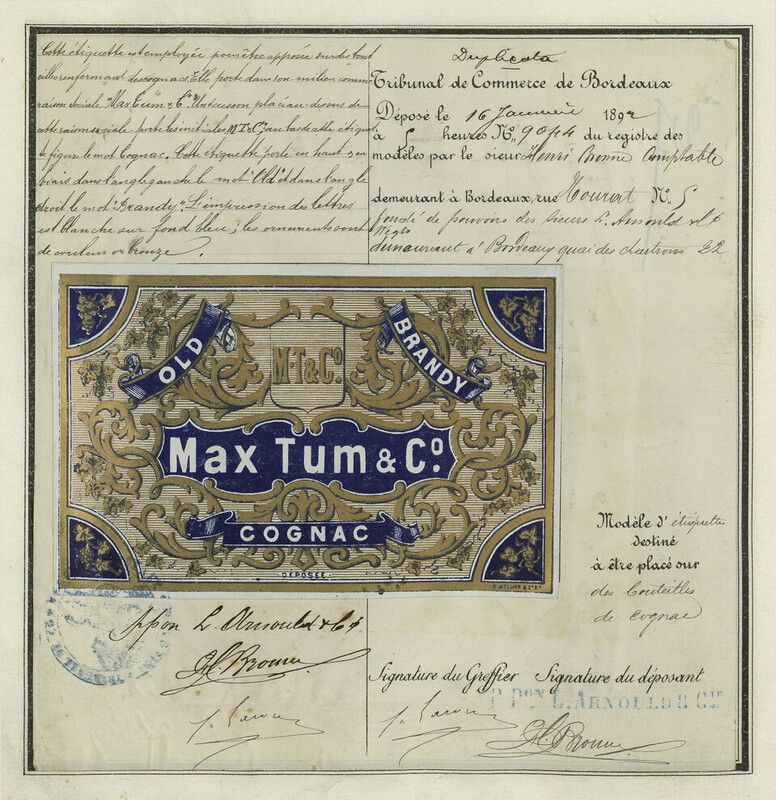 Cette étiquette est employée pour être apposée sur des bout
eilles renfermant des cognacs. Elle porte dans son milieu comme
raison sociale "Max Tum & Co. Un écusson placé au-dessous de
cette raison sociale porte les initiales M.T & Co. au bas de cette étiquet
te figure le mot Cognac. Cette étiquette porte en haut & en
biais dans l'angle gauche le mot "Old" et dans l'angle
droit le mot "Brandy". L'impression des lettres
est blanche sur fond bleu; les ornements sont
de couleur or bronze.
Duplicata
Tribunal de Commerce de Bordeaux
Déposé le 16 Janvier 1892
à 5 heures No. 9044 du registre des
modèles par le sieur Henri Bonne Comptable
demeurant à Bordeaux, rue No. 5
fondé de pouvoirs des sieurs L. Arnould & Ce
Négts
demeurant à Bordeaux quai des chartrons 22
OLD
BRANDY
M.T & Co.
Max Tum & Co.
COGNAC
DÉPOSÉE
Modèle d'étiquette
destiné
à être placé sur
des bouteilles
de cognac
Ppon L. Arnould & Ce
Signature du Greffier Signature du déposant
P. Pon L. ARNOULD & CIE